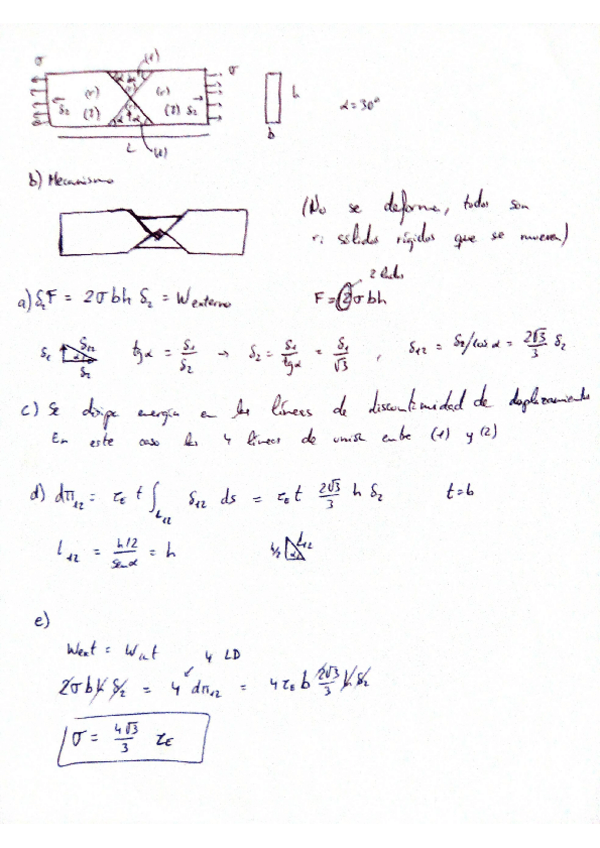 σ (1) σ
(r) (r) h α=30º
δ2 (2) (2) δ2
α α
b
L (1)
b) Mecanismo
(No se deforma, todos son
sólidos rígidos que se mueven)
2 lados
a) δ2F = 2σbh δ2 = Wexterno F = 2σbh
δ1 δ12 α δ2 tgα = δ1/δ2 → δ2 = δ1/tgα = δ1/√3 , δ12 = δ2/cosα = 2√3/3 δ2
c) Se disipa energía en las líneas de discontinuidad de desplazamiento
En este caso las 4 líneas de unión entre (1) y (2)
d) dπ12 = τE t ∫L12 δ12 ds = τE t 2√3/3 h δ2 t=b
L12 = h/2/senα = h h/2 α L12
e)
Wext = Wint 4 LD
2σbhδ2 = 4 dπ12 = 4τE b 2√3/3 hδ2
σ = 4√3/3 τE